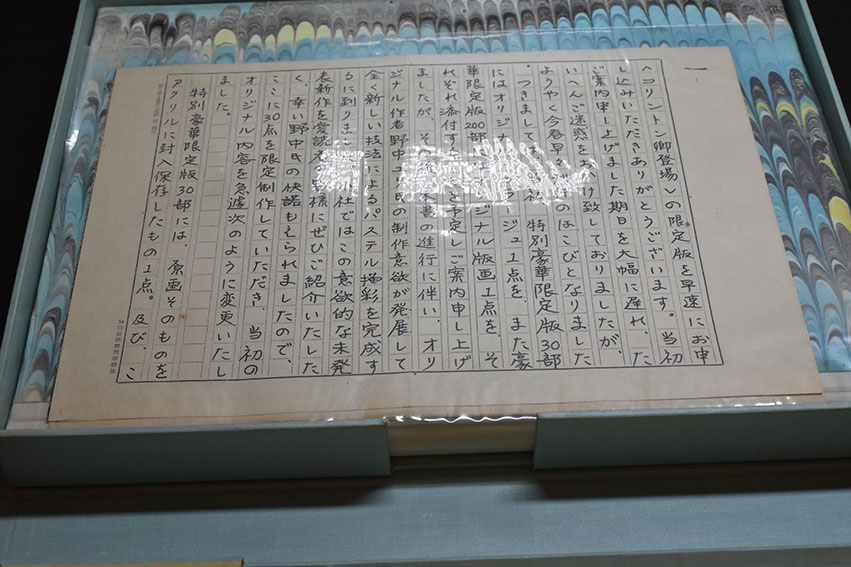 一
〈コリントン卿登場〉の限定版を早速にお申
し込みいただきありがとうございます。当初
ご案内申し上げました期日を大幅に遅れ、た
いへんご迷惑をおかけ致しておりましたが、
ようやく今春早 のはこびとなりました
。つきましては、当初、特別豪華限定版30部
にはオリジナ ラージュ1点を、また豪
華限定版200部 ジナル版画1点を、そ
れぞれ添付す ことを予定しご案内申し上げ
ましたが、その 本書の進行に伴い、オリ
ジナル作者野中ユリ氏の制作意欲が発展して
全く新しい技法によるパステル描彩を完成す
るに到りました。小社ではこの意欲的な未発
表新作を愛読者の皆様にぜひご紹介いたした
く、幸い野中氏の快諾もえられましたので、
ここに30点を限定制作していただき、当初の
オリジナル内容を急遽次のように変更いたし
ました。
特別豪華限定版30部には、原画そのものを
アクリルに封入保存したもの1点。及び、こ